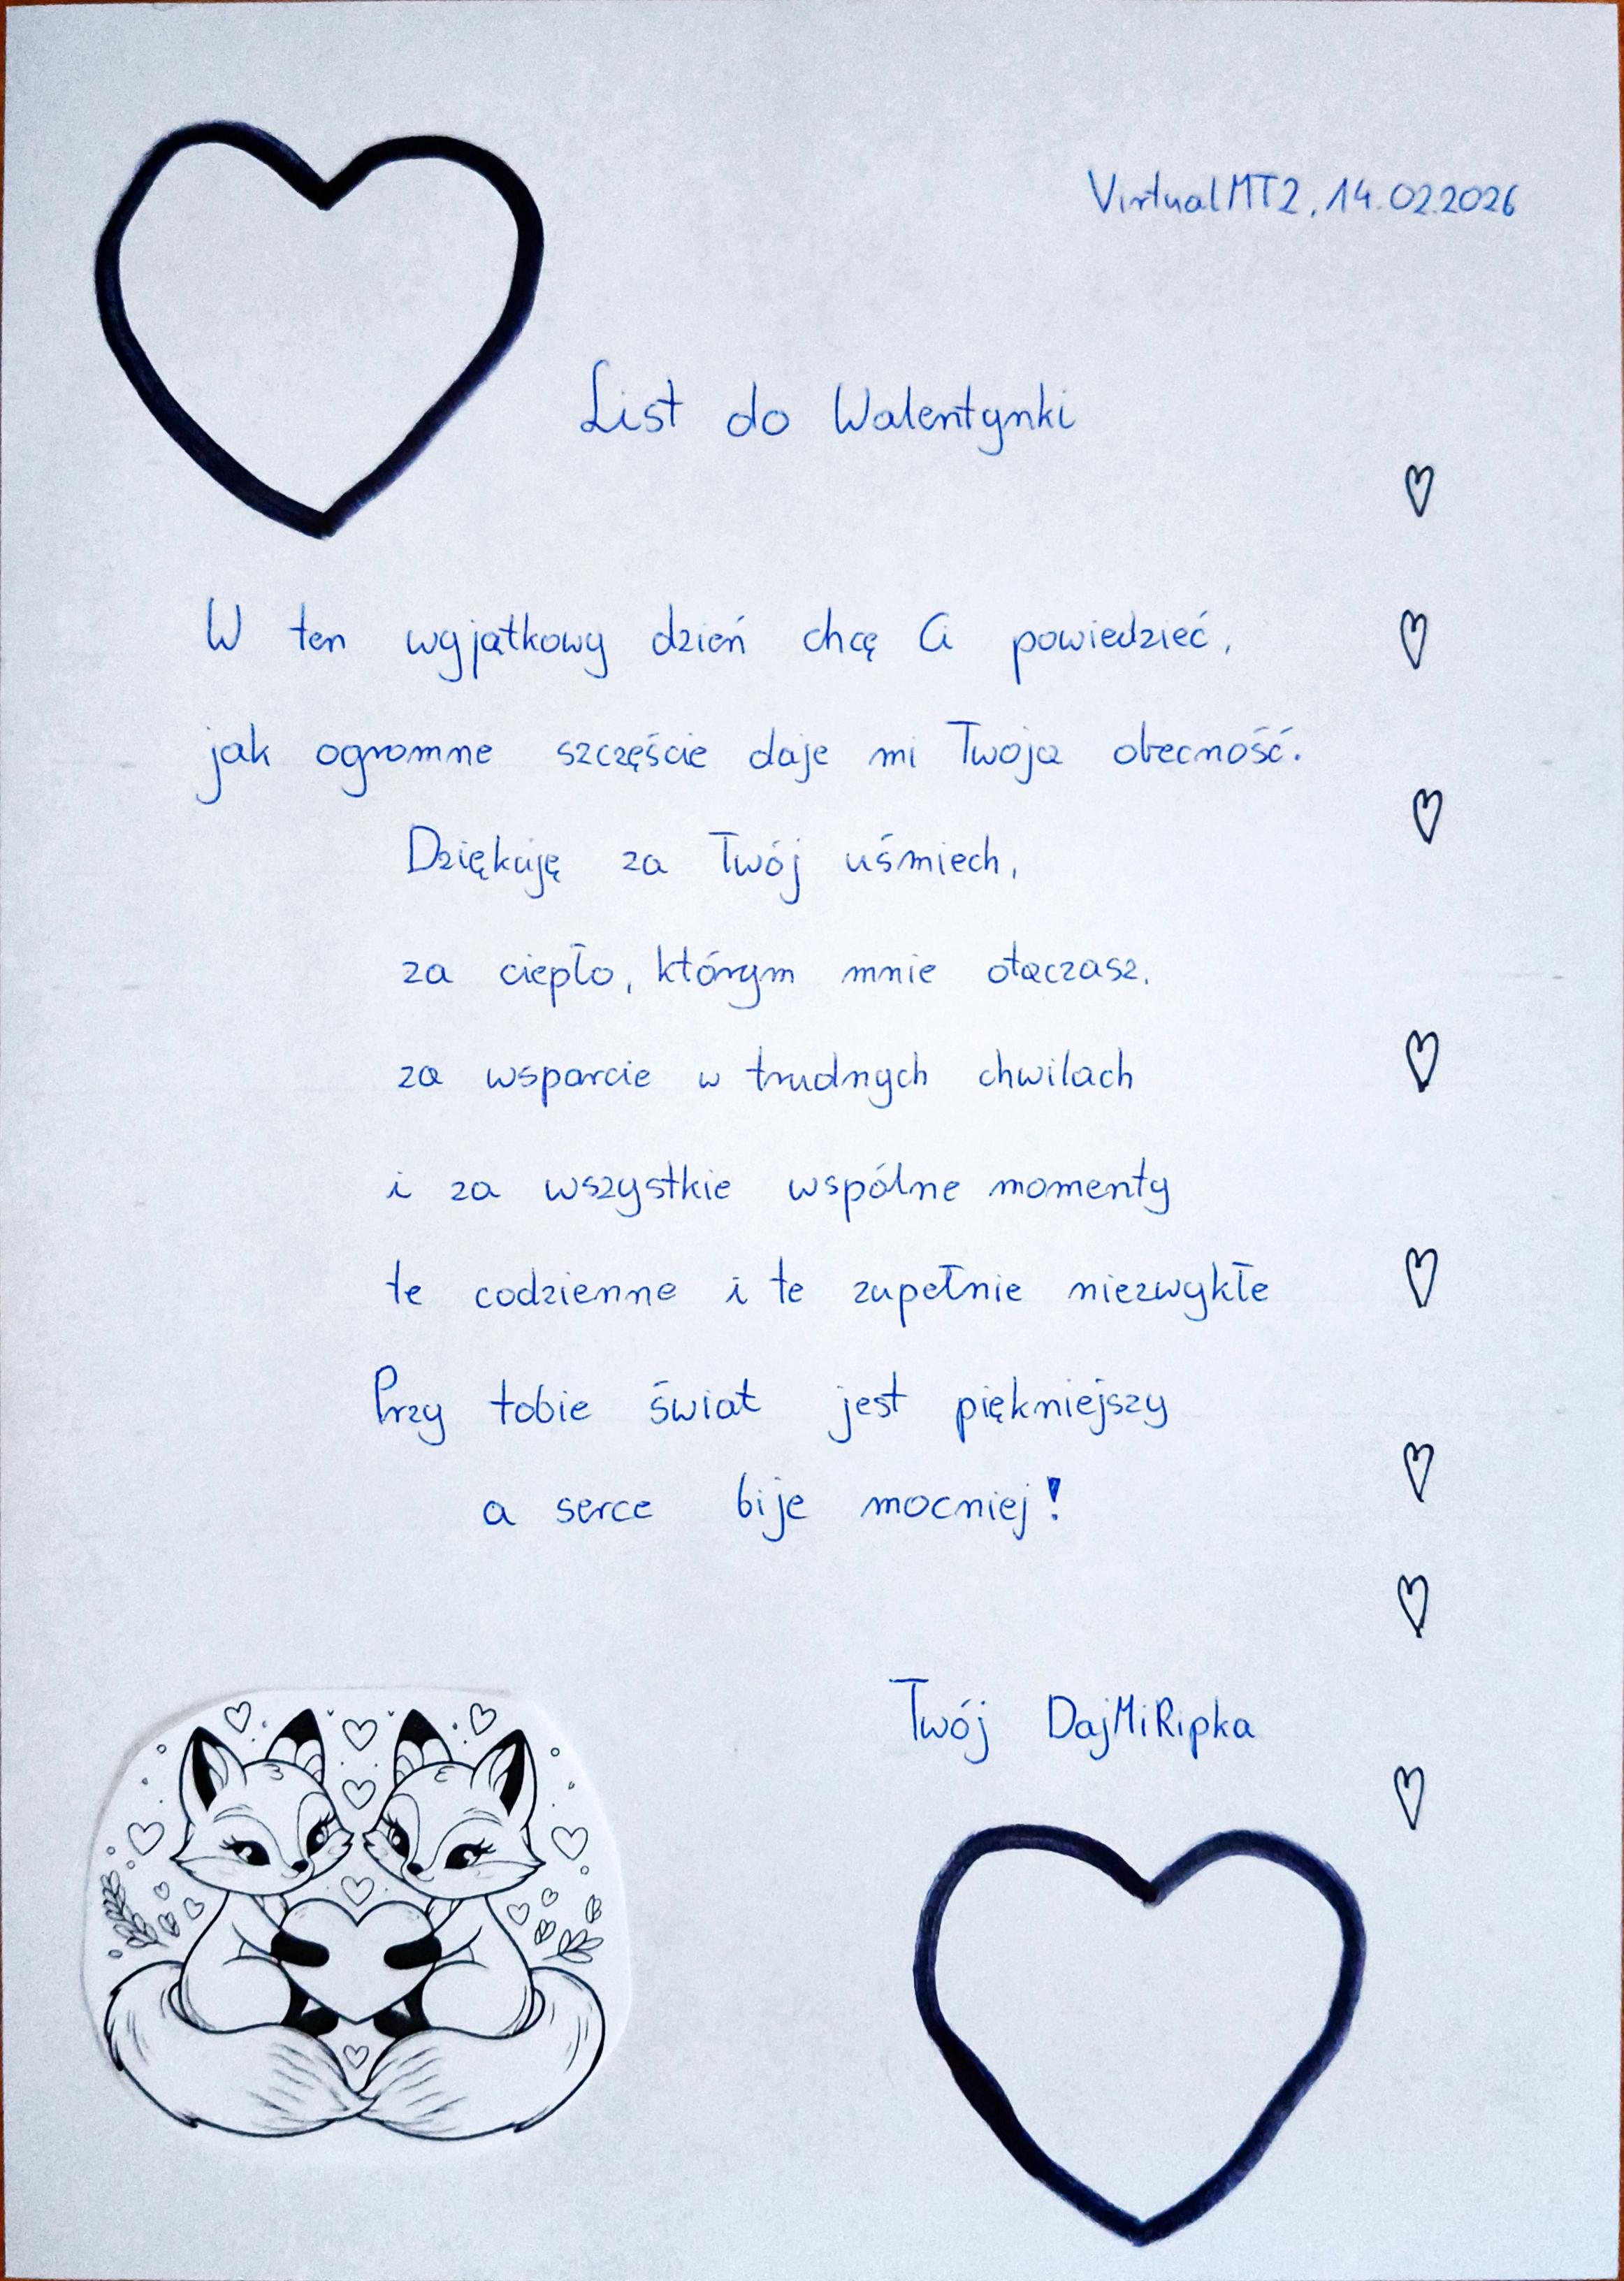 VirtualMT2, 14.02.2026
List do Walentynki
W ten wyjątkowy dzień chcę Ci powiedzieć,
jak ogromne szczęście daje mi Twoja obecność.
Dziękuję za Twój uśmiech,
za ciepło, którym mnie otaczasz,
za wsparcie w trudnych chwilach
i za wszystkie wspólne momenty
te codzienne i te zupełnie niezwykłe
Przy tobie świat jest piękniejszy
a serce bije mocniej!
Twój DajMiRipka